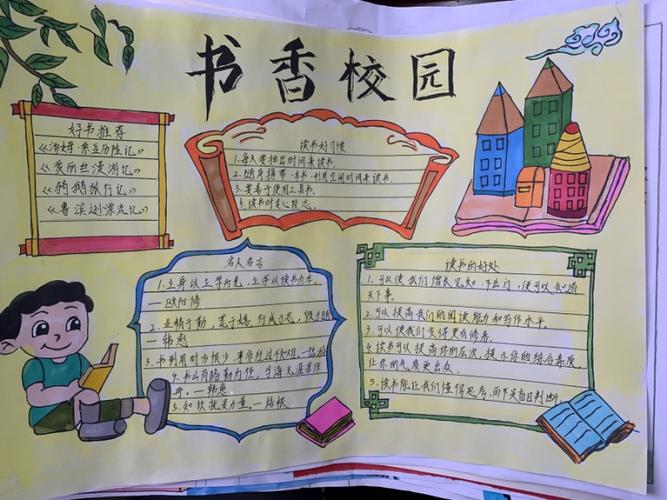 书香校园
好书推荐
《汤姆·索亚历险记》
《爱丽丝漫游记》
《骑鹅旅行记》
《鲁滨逊漂流记》
读书好习惯
1.每天要抽出时间来读书.
2.随身携带一本书.利用空闲时间来读书.
3.要善于使用工具书.
4.读书时专心致志.
名人名言
1.立身以立学为先,立学以读书为本.
—欧阳修
2.业精于勤,荒于嬉,行成于思,毁于随
—韩愈
3.书到用时方恨少,事非经过不知难.—陆游
4.书山有路勤为径,学海无涯苦作
舟.—韩愈
5.知识就是力量.—培根
读书的好处
1.可以使我们增长见知.不出门,便可以知道
天下事.
2.可以提高我们的阅读能力和写作水平.
3.可以使我们变得更有修养.
4.读书可以提高你的层次,提示你的综合素质,
让你的气质更出众.
5.读书能让我们懂得思考,而不是盲目判断.